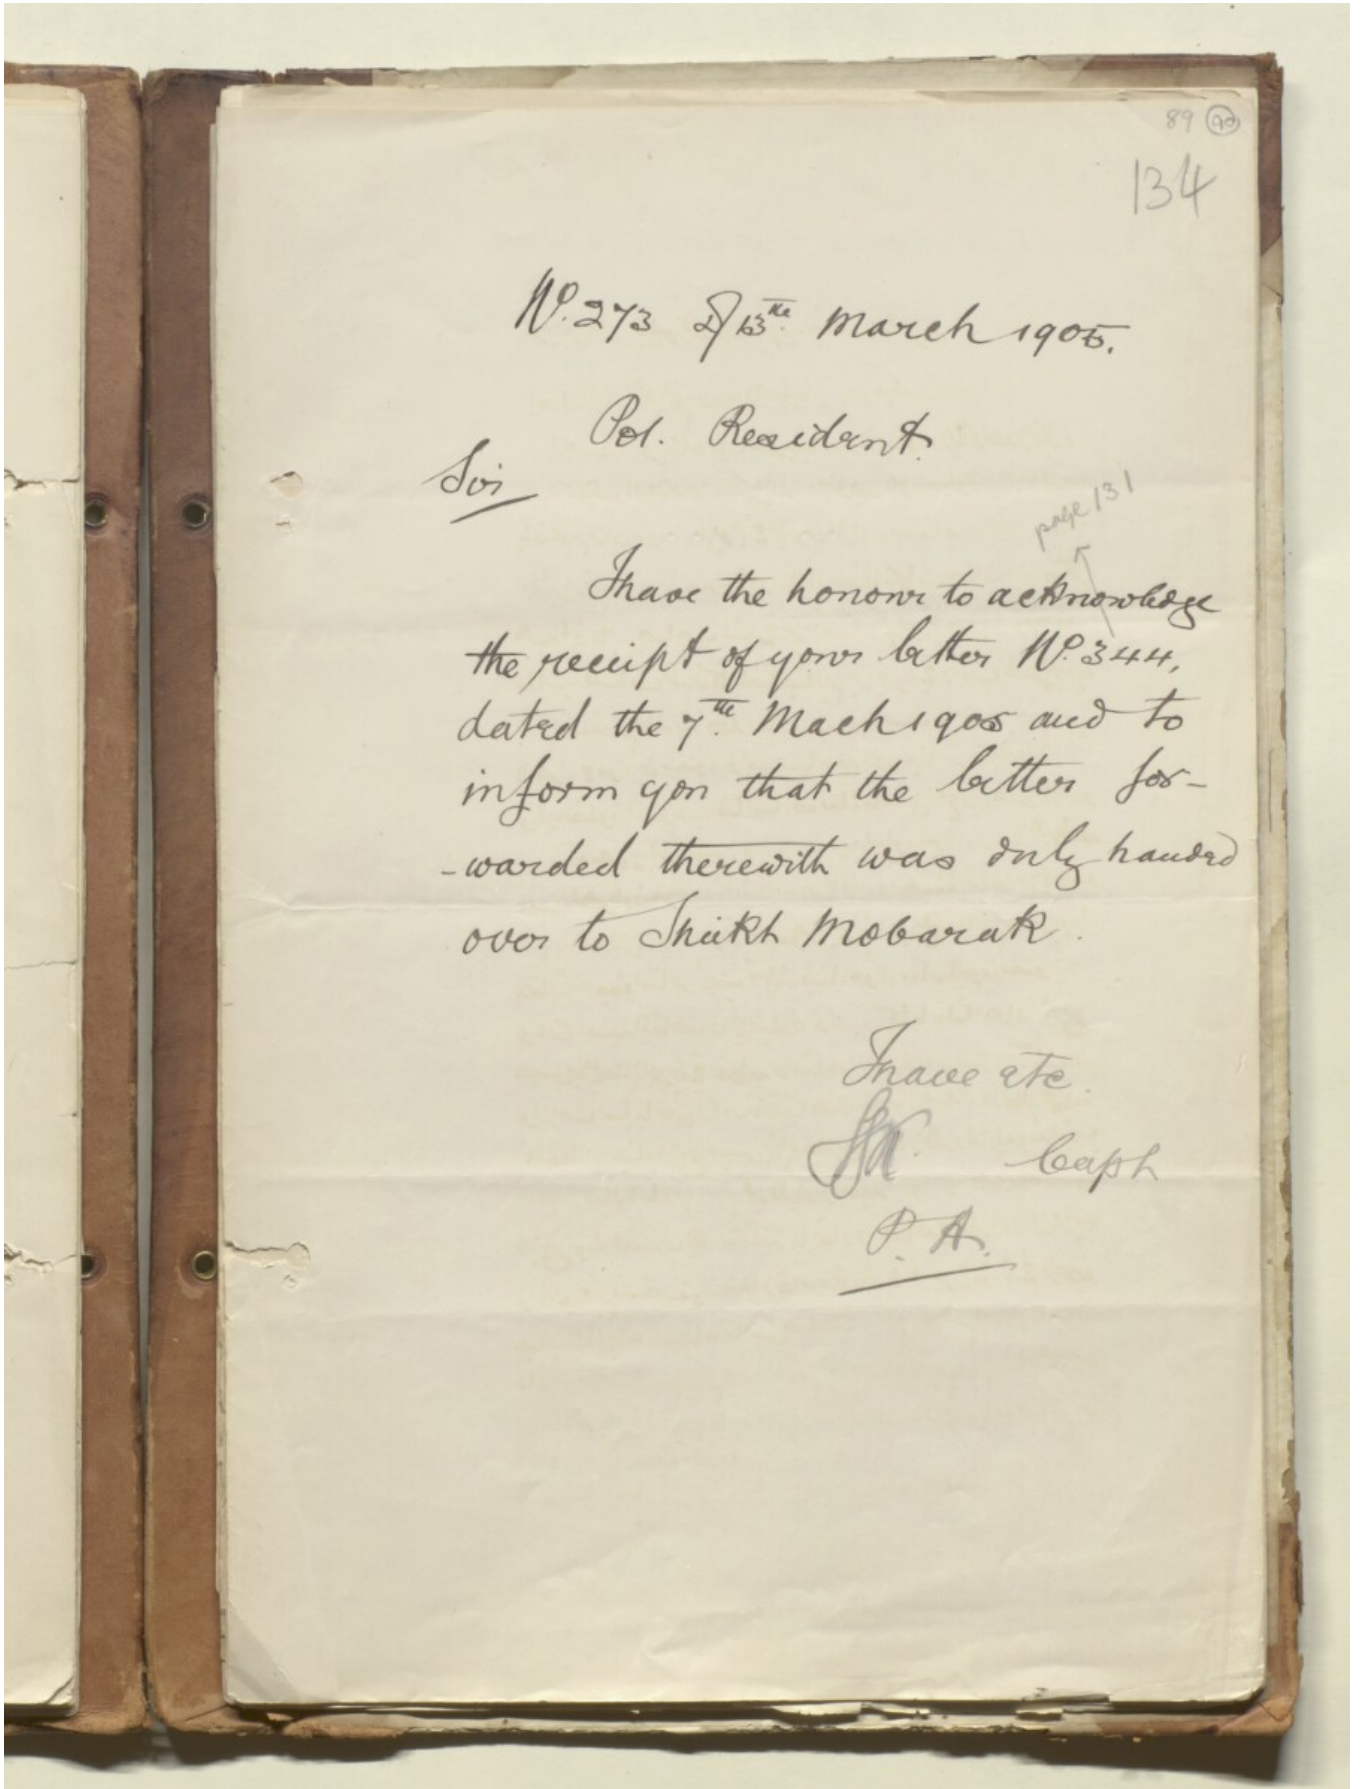 89 90
134
No. 273 d/13th March 1905.
Pol. Resident.
Sir
page 131
I have the honour to acknowledge
the receipt of your letter No. 344,
dated the 7th. Mach 1905 and to
inform you that the letter for-
-warded therewith was duly handed
over to Sheikh Mobarak.
I have etc.
Capt
P. A.